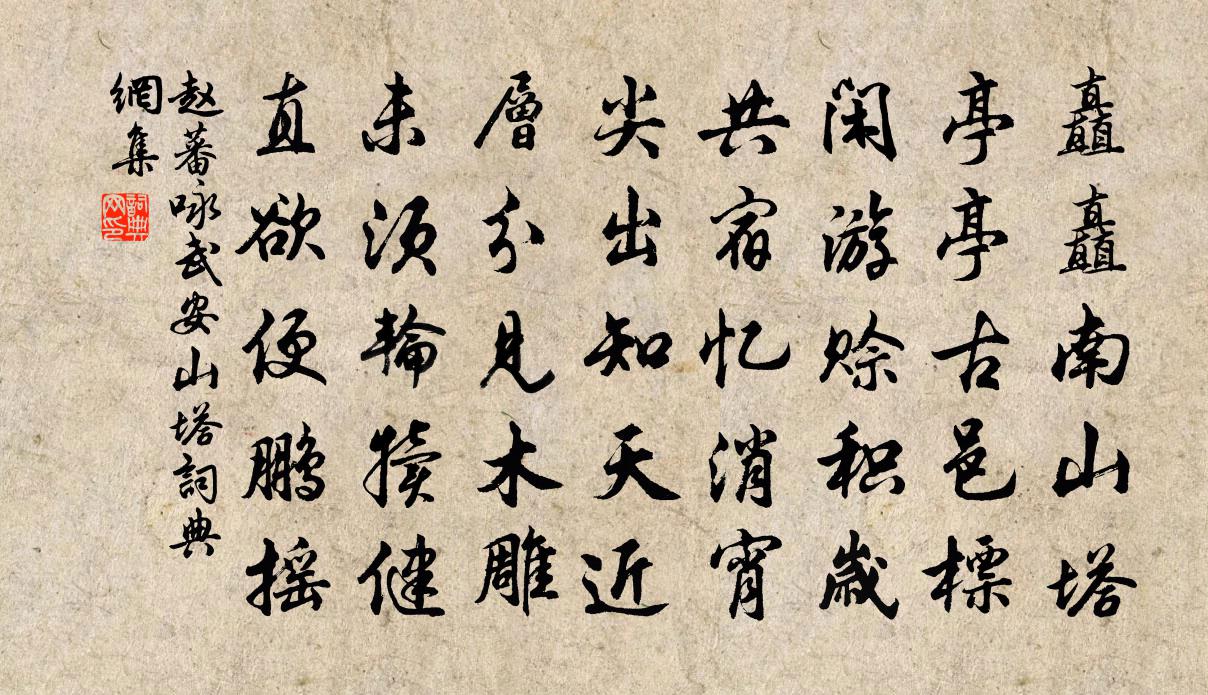 矗矗南山塔
亭亭古邑標
闲游赊积歲
共宿忆消宵
尖出知天近
層分見木雕
未須輪犢健
直欲便鵬摇
赵蕃咏武安山塔詞典
網集
詞典
网印